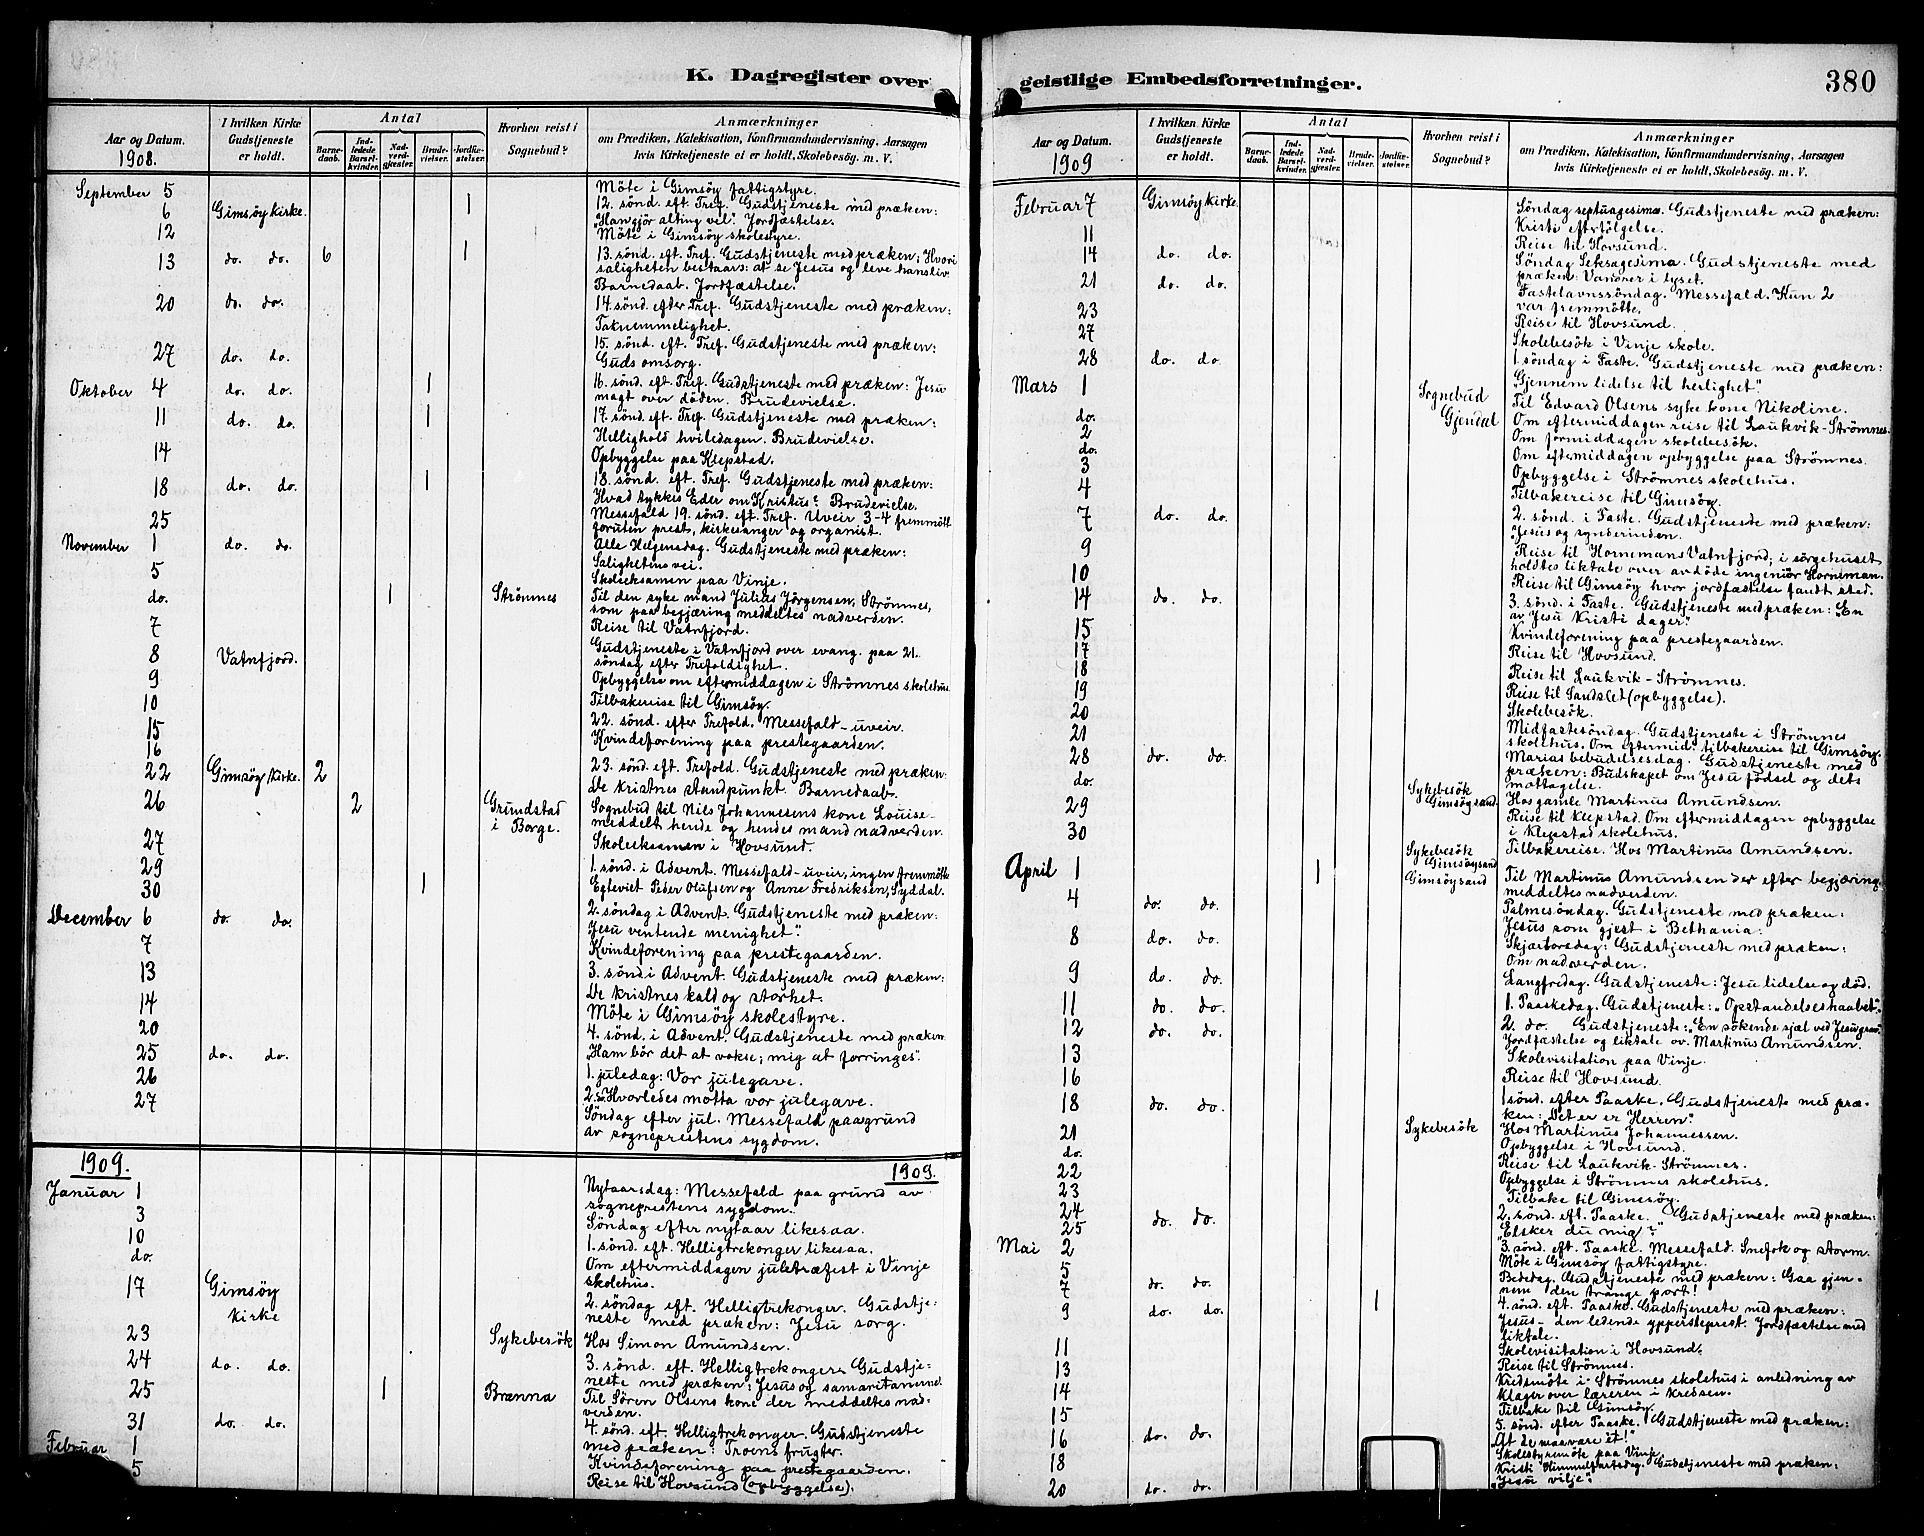 K. Dagregister over
Aar og Datum.
1908.
I hvilken Kirke Gudstjeneste er holdt.
Antal
Barne-daab.
Ind-ledede Barsel-kvinder.
Nad-verd-gjester.
Brude-vielser.
Jordfæ-stelser.
Hvorhen reist i Sognebud?
Anmærkninger
om Prædiken, Katekisation, Konfirmandundervisning, Aarsagen
hvis Kirketjeneste ei er holdt, Skolebesøg. m. V.
September 5 Möte i Gimsöy fattigstyre.
6 Gimsöy Kirke. 1 12. sönd. eft. Tref. Gudstjeneste med præken:
"Han gjör alting vel". Jordfæstelse.
12 Möte i Gimsöy skolestyre.
13 do. do. 6 1 13. sönd. eft. Tref. Gudstjeneste med præken: Hvori
saligheten bestaar: at se Jesus og leve hans liv.
Barnedaab. Jordfæstelse.
20 do. do. 14. sönd. efter Tref. Gudstjeneste med præken:
Taknemmelighet.
27 do. do. 15. sönd. eft. Tref. Gudstjeneste med præken:
Guds omsorg.
Oktober 4 do. do. 1 16. sönd. eft. Tref. Gudstjeneste med præken: Jesu
magt over döden. Brudevielse.
11 do. do. 1 17. sönd. eft. Tref. Gudstjeneste med præken:
Hellighold hviledagen. Brudevielse.
14 Opbyggelse paa Klepstad.
18 do. do. 1 18. sönd. eft. Tref. Gudstjeneste med præken:
Hvad tykkes Eder om Kristus? Brudevielse.
25 Messefald 19. sönd. eft. Tref. Uveir 3-4 fremmött
foruten prest, kirkesanger og organist.
November 1 do. do. Alle Helgensdag. Gudstjeneste med præken:
Salighetens vei.
5 Skoleeksamen paa Vinje.
do. 1 Strömnes Til den syke mand Julius Jörgensen, Strömnes,
som paa begjæring meddeltes nadverden.
7 Reise til Vatnfjord.
8 Vatnfjord. Gudstjeneste i Vatnfjord over evang. paa 21.
söndag efter Trefoldighet.
9 Opbyggelse om eftermiddagen i Strömnes skolehus.
10 Tilbakereise til Gimsöy.
15 22. sönd. efter Trefold. Messefald - uveir.
16 Kvindeforening paa prestegaarden.
22 Gimsöy kirke. 2 23. sönd. eft. Trefold. Gudstjeneste med præken:
De kristnes standpunkt. Barnedaab.
26 2 Grundstad i Borge. Sognebud til Nils Johannesens kone Louise-
meddelt hende og hendes mand nadverden.
27 Skoleeksamen i Hovsund.
29 1. sönd. i Advent. Messefald - uveir, ingen fremmötte
30 1 Egteviet Peder Olufsen og Anne Fredriksen, Syddal.
December 6 do. do. 2. söndag i Advent. Gudstjeneste med præken:
Jesu ventende menighet".
7 Kvindeforening paa prestegaarden.
13 3. sönd i Advent. Gudstjeneste med præken:
De kristnes kald og storhet.
14 Möte i Gimsöy skolestyre.
20 4. sönd. i Advent. Gudstjeneste med præken
"Ham bör det at vokse; mig at forringes".
25 do. do. 1. juledag: Vor julegave.
26 2. do Hvorledes motta vor julegave.
27 Söndag efter jul. Messefald paa grund
av sogneprestens sygdom.
1909. 1909.
Januar 1 Nytaarsdag: Messefald paa grund av
sogneprestens sygdom.
3 Söndag efter nytaar likesaa.
10 1. sönd. eft. Helligtrekonger likesaa.
do. Om eftermiddagen juletræfest i Vinje
skolehus.
17 Gimsöy kirke 2. söndag eft. Helligtrekonger. Gudstje-
neste med præken: Jesu sorg.
23 Sykebesök Hos Simon Amundsen.
24 do. do. 3. sönd. eft. Helligtrekonger Gudstje-
neste med præken: Jesus og samaritanerne.
25 1 Brænna Til Sören Olsens kone der meddeltes nad-
verden.
31 do. do. 4. sönd. eft. Helligtrekonger. Gudstjeneste
med præken: Troens frugter.
Februar 1 Kvindeforening paa prestegaarden.
5 Reise til Hovsund (opbyggelse).
geistlige Embedsforretninger.
380
Aar og Datum.
1909
I hvilken Kirke Gudstjeneste er holdt.
Antal
Barne-daab.
Ind-ledede Barsel-kvinder.
Nad-verd-gjester.
Brude-vielser.
Jordfæ-stelser.
Hvorhen reist i Sognebud?
Anmærkninger
om Prædiken, Katekisation, Konfirmandundervisning, Aarsagen
hvis Kirketjeneste ei er holdt, Skolebesøg. m. V.
Februar 7 Gimsöy kirke Söndag septuagesima. Gudstjeneste med præken:
Kristi efterfölgelse.
11 Reise til Hovsund.
14 do. do. Söndag Seksagesima. Gudstjeneste med
præken: Vandrer i lyset.
21 do. do. Fastelavnssöndag. Messefald. Kun 2
var fremmötte.
23 Reise til Hovsund.
27 Skolebesök i Vinje skole.
28 do. do. 1. söndag i Faste. Gudstjeneste med præken:
"Gjennem lidelse til herlighet".
Mars 1 Sognebud Gjendal Til Edvard Olsens syke kone Nikoline.
do. Om eftermiddagen reise til Laukvik-Strömnes.
2 Om formiddagen skolebesök.
do. Om eftermiddagen opbyggelse paa Strömnes.
3 Opbyggelse i Strömnes skolehus.
4 Tilbakereise til Gimsöy.
7 do. do. 2. sönd. i Faste. Gudstjeneste med præken:
Jesus og synderinden.
9 Reise til Hornemans Vatnfjord; i sörgehuset
holdtes liktale over avdöde ingeniör Horneman.
10 Reise til Gimsöy hvor jordfæstelse fandt sted.
14 do. do. 3. sönd. i Faste. Gudstjeneste med præken: "En
av Jesu Kristi dager".
15 Kvindeforening paa prestegaarden.
17 Reise til Hovsund.
18 Reise til Laukvik-Strömnes.
19 Reise til Sandslet (opbyggelse).
20 Skolebesök.
21 Midfastesöndag. Gudstjeneste i Strömnes
skolehus. Om eftermid. tilbakereise til Gimsöy.
28 do. do. Marias bebudelsesdag. Gudstjeneste med
præken: Budskapet om Jesu födsel og dets
mottagelse.
do. Sykebesök Gimsöysand Hos gamle Martinus Amundsen.
29 Reise til Klepstad. Om eftermiddagen opbyggelse
i Klepstad skolehus.
30 Sykebesök Gimsöysand Tilbakereise. Hos Martinus Amundsen.
April 1 1 Gimsöysand Til Martinus Amundsen der efter begjæring
meddeltes nadverden.
4 do. do. Palmesöndag. Gudstjeneste med præken:
Jesus som gjest i Bethania.
8 do. do. Skjærtorsdag: Gudstjeneste med præken:
Om nadverden.
9 do. do. Langfredag. Gudstjeneste: Jesu lidelse og död.
11 do. do. 1. Paaskedag. Gudstjeneste: "Opstandelseshaabet".
12 do. do. 2. do. Gudstjeneste: "En sökende sjæl ved Jesu grav.
Jordfæstelse og liktale ov. Martinus Amundsen.
13 Skolevisitation paa Vinje
16 Reise til Hovsund.
18 do. do. 1 sönd. efter Paaske. Gudstjeneste med præ-
ken: "Det er Herren".
21 Sykebesök Hos Martinus Johannessen.
do. Opbyggelse i Hovsund.
22 Reise til Laukvik-Strömnes.
23 Opbyggelse i Strömnes skolehus.
24 Tilbake til Gimsöy.
25 do. do. 2. sönd. eft. Paaske. Gudstjeneste med præken:
"Elsker du mig?"
Mai 2 3. sönd. eft. Paaske. Messefald. Snefok og storm.
5 Möte i Gimsöy fattigstyre.
7 do. do. Bededag. Gudstjeneste med præken: Gaa gjen-
nem den trange port!
9 do. do. 1 4. sönd. eft. Paaske. Gudstjeneste med præken:
Jesus - den ledende ypperstprest. Jordfæstelse med
liktale.
11 Skolevisitation i Hovsund.
13 Reise til Strömnes.
14 Kredsmöte i Strömnes skolehus i anledning av
klager over læreren i kredsen.
15 Tilbake til Gimsöy.
16 do. do. 5. sönd. efter Paaske. Gudstjeneste med præken:
"At de maa være ét!"
18 Skolestyremöte paa Vinje.
20 do. do. Kristi Himmelfartsdag. Gudstjeneste med præken:
"Jesu vilje".